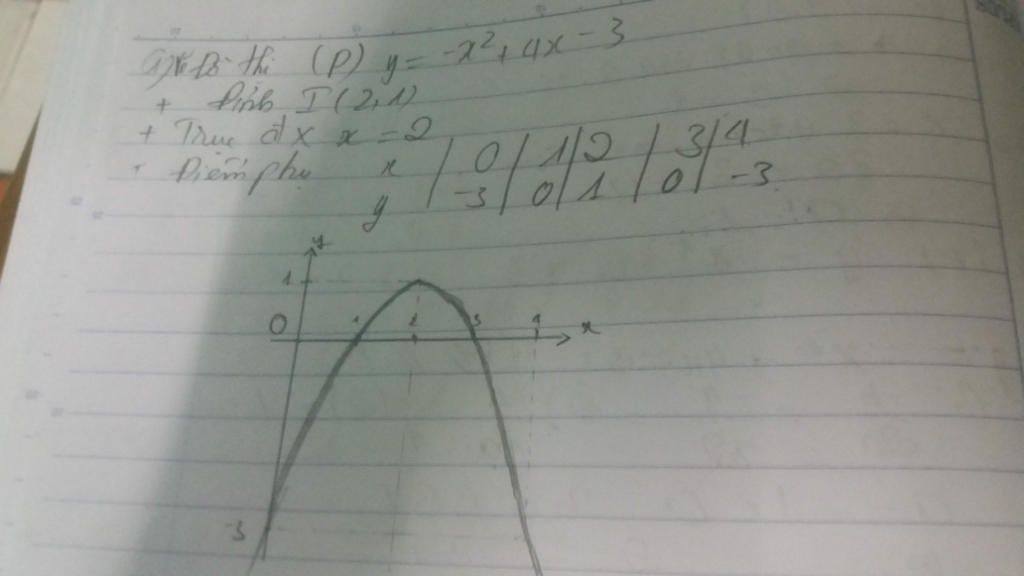 a) Vẽ Đồ thị (P) y = -x² + 4x - 3
+ Đỉnh I(2,1)
+ Trục đx x = 2
+ Điểm phụ x | 0 | 1 | 2 | 3 | 4
y | -3 | 0 | 1 | 0 | -3
y
1
O 1 2 3 4 x
-3